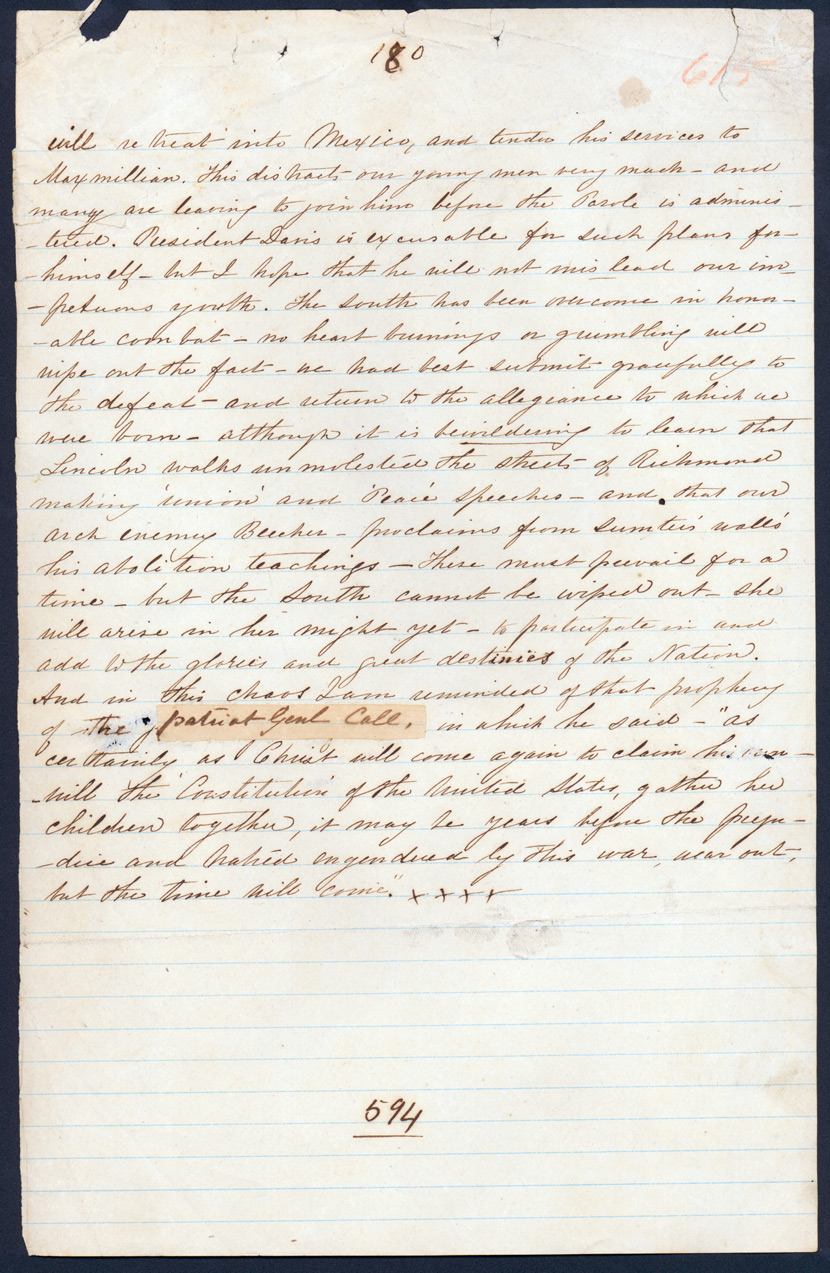 180
615
will retreat into Mexico, and tender his services to
Maxmillian. This distracts our young men very much - and
many are leaving to join him before the Parole is adminis-
-tered. President Davis is excusable for such plans for-
-himself - but I hope that he will not mis lead our im-
-petuous youth. The South has been overcome in honor-
-able combat - no heart burnings or grumbling will
wipe out the fact - we had best submit gracefully to
the defeat - and return to the allegiance to which we
were born - although it is bewildering to learn that
Lincoln walks unmolested the streets of Richmond
making 'union' and 'Peace' speeches - and that our
arch enemy Beecher - proclaims from Sumter's walls
his abolition teachings - These must prevail for a
time - but the South cannot be wiped out - she
will arise in her might yet - to participate in and
add to the glories and great destinies of the Nation.
And in this chaos I am reminded of that prophecy
of the patriot Genl Call, in which he said - "as
certainly as Christ will come again to claim his own -
-will the 'Constitution' of the United States, gather her
children together, it may be years before the preju-
-dice and hatred engendered by this war, wear out,
but the time will come". x x x x
594